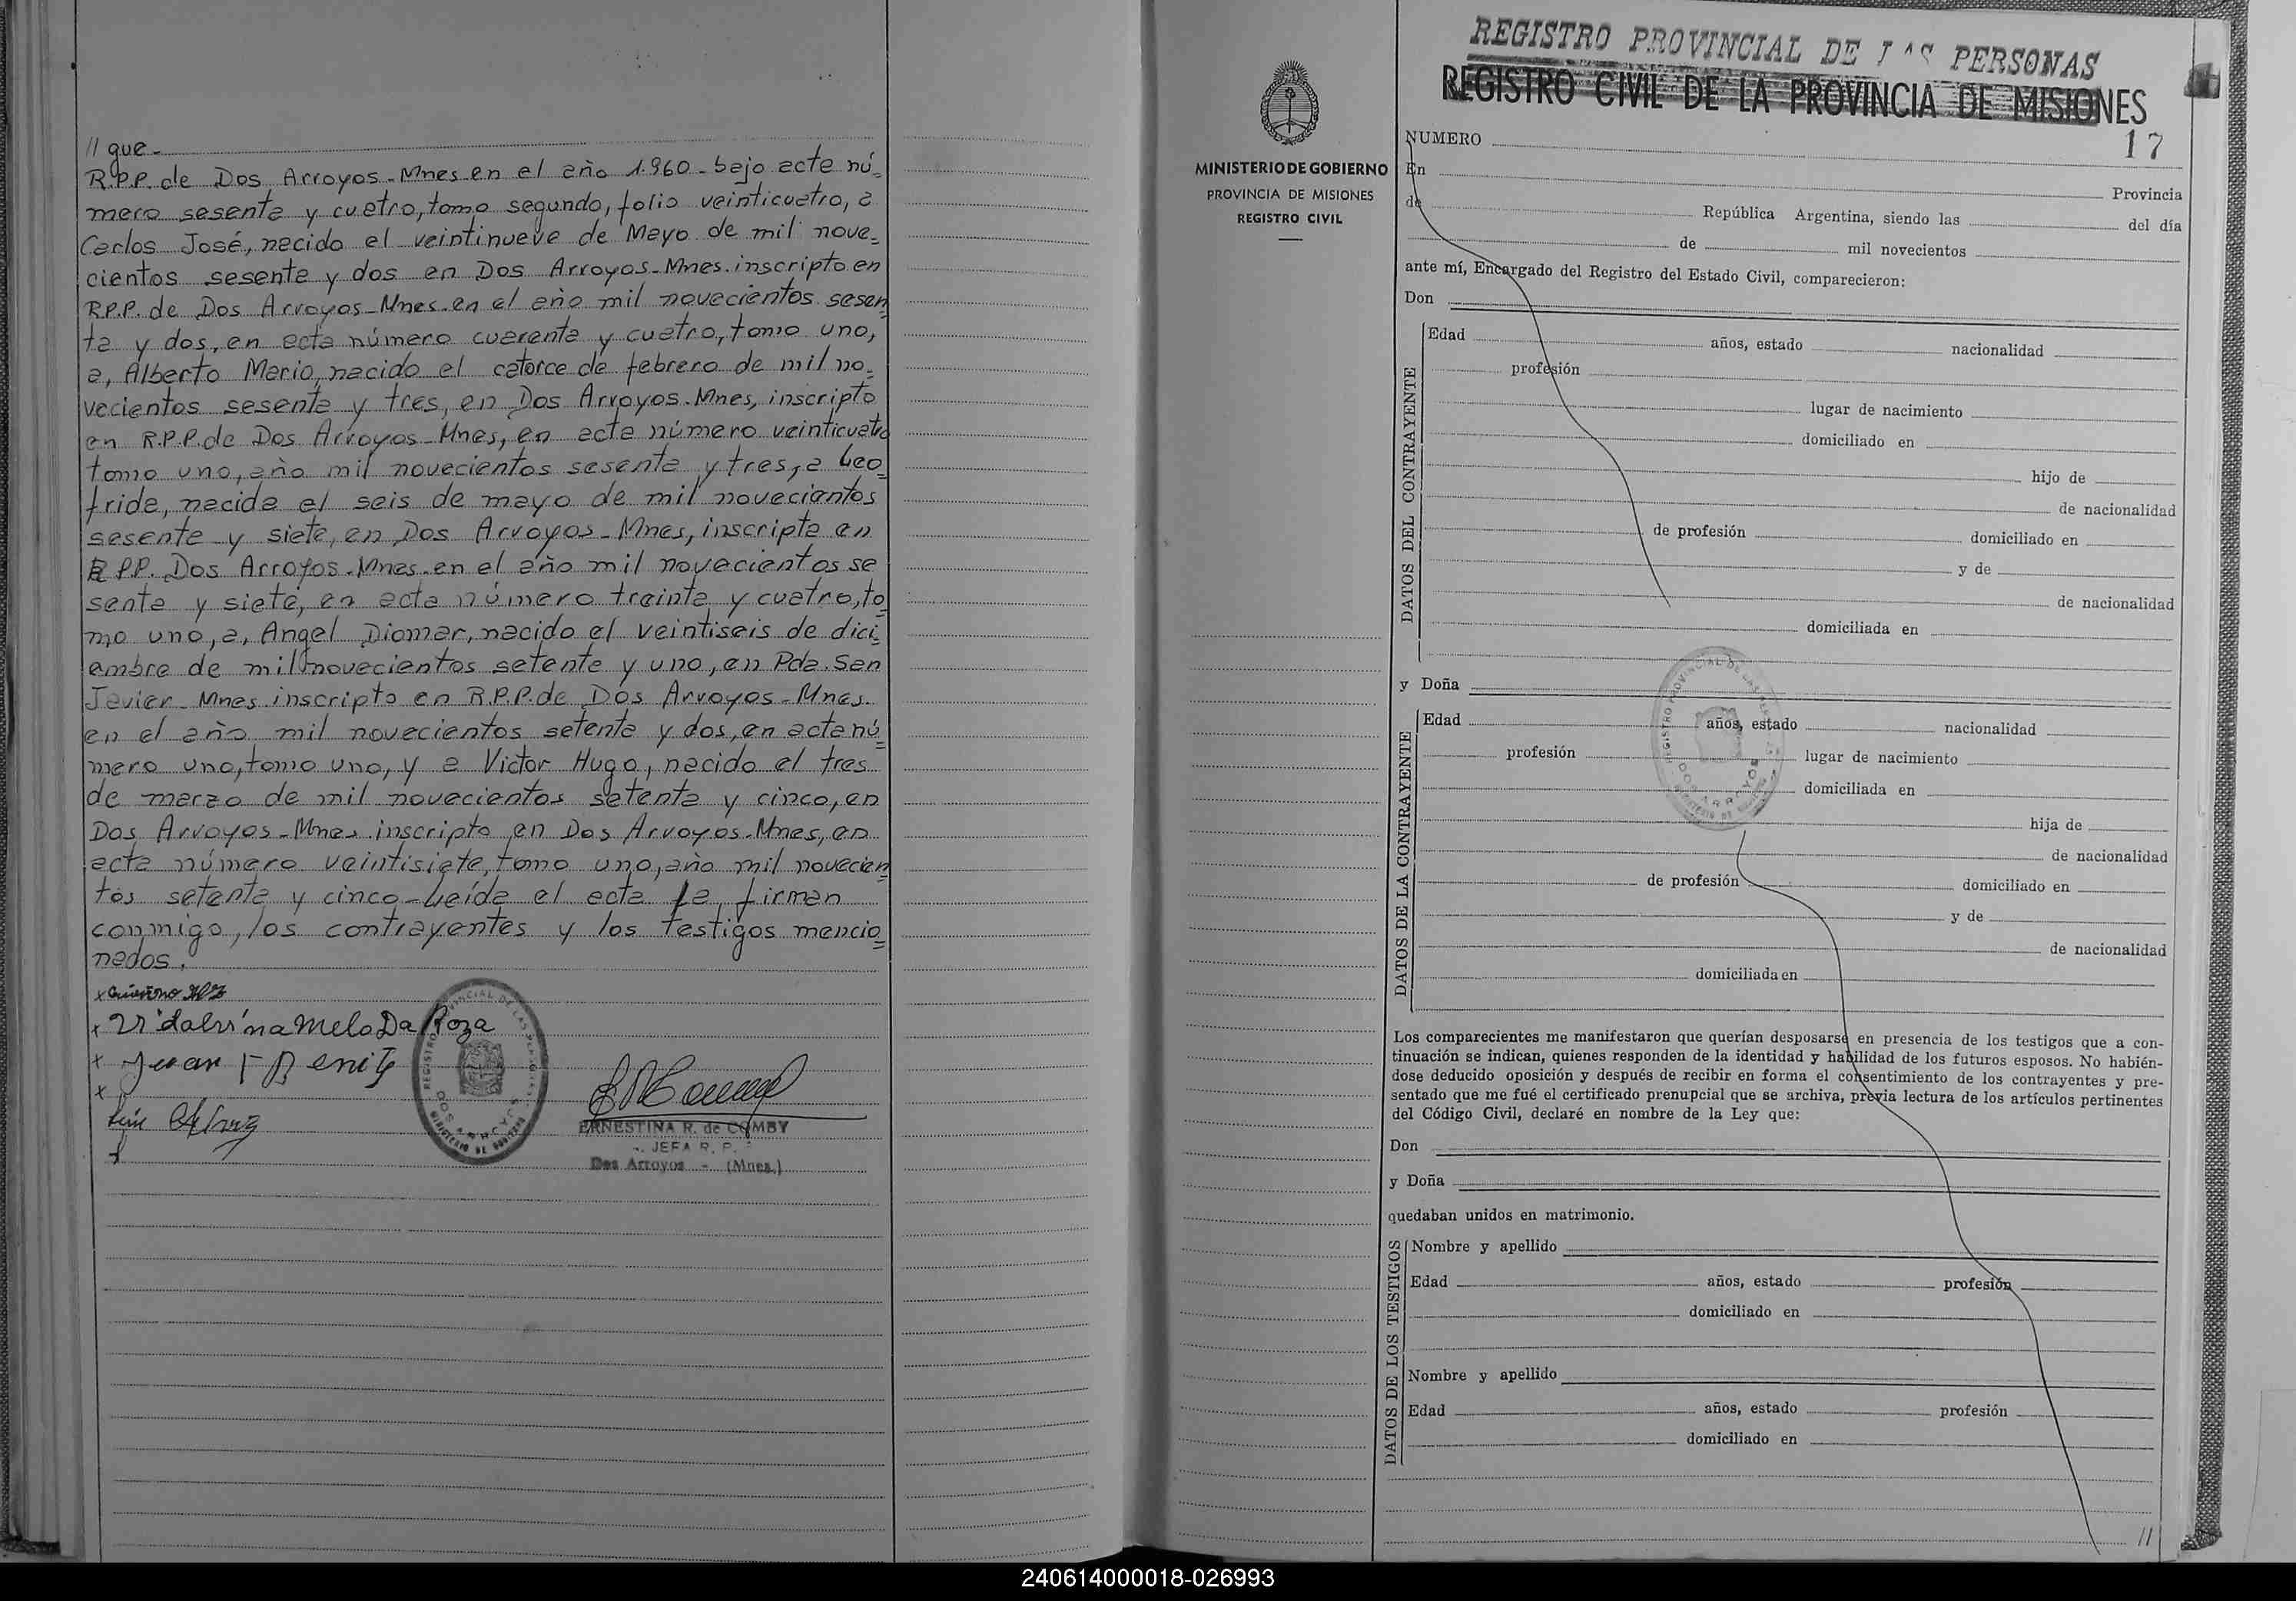 // que-
R.P.P. de Dos Arroyos-Mnes en el año 1.960 - bajo acta nú-
mero sesenta y cuatro, tomo segundo, folio veinticuatro, a
Carlos José, nacido el veintinueve de Mayo de mil nove-
cientos sesenta y dos en Dos Arroyos-Mnes. inscripto en
R.P.P. de Dos Arroyos-Mnes. en el año mil novecientos sesen
ta y dos, en acta número cuarenta y cuatro, tomo uno,
a, Alberto Mario, nacido el catorce de febrero de mil no-
vecientos sesenta y tres, en Dos Arroyos-Mnes, inscripto
en R.P.P. de Dos Arroyos-Mnes, en acta número veinticuatro
tomo uno, año mil novecientos sesenta y tres, a Leo-
frida, nacida el seis de mayo de mil novecientos
sesenta y siete, en Dos Arroyos-Mnes, inscripta en
R.P.P. Dos Arroyos-Mnes. en el año mil novecientos se
senta y siete, en acta número treinta y cuatro, to-
mo uno, a, Angel Diomar, nacido el veintiseis de dici-
embre de mil novecientos setenta y uno, en Pda. San
Javier-Mnes. inscripto en R.P.P. de Dos Arroyos-Mnes.
en el año mil novecientos setenta y dos, en acta nú-
mero uno, tomo uno, y a Victor Hugo, nacido el tres
de marzo de mil novecientos setenta y cinco, en
Dos Arroyos-Mnes inscripto en Dos Arroyos-Mnes, en
acta número veintisiete, tomo uno, año mil novecien
tos setenta y cinco-Leída el acta la firman
conmigo, los contrayentes y los testigos mencio-
nados.
x
x Vidalvina Melo Da Roza
x Juan F Benitz
x
REGISTRO PROVINCIAL DE LAS PERSONAS
DOS ARROYOS
MINISTERIO DE GOBIERNO
ERNESTINA R. de COMBY
JEFA R. P.
Dos Arroyos - (Mnes.)
MINISTERIO DE GOBIERNO
PROVINCIA DE MISIONES
REGISTRO CIVIL
REGISTRO PROVINCIAL DE LAS PERSONAS
REGISTRO CIVIL DE LA PROVINCIA DE MISIONES
17
NUMERO
En
Provincia
de República Argentina, siendo las del día
de mil novecientos
ante mí, Encargado del Registro del Estado Civil, comparecieron:
Don
DATOS DEL CONTRAYENTE
Edad años, estado nacionalidad
profesión
lugar de nacimiento
domiciliado en
hijo de
de nacionalidad
de profesión domiciliado en
y de
de nacionalidad
domiciliada en
y Doña
DATOS DE LA CONTRAYENTE
Edad años, estado nacionalidad
profesión lugar de nacimiento
domiciliada en
hija de
de nacionalidad
de profesión domiciliado en
y de
de nacionalidad
domiciliada en
REGISTRO PROVINCIAL DE LAS PERSONAS
DOS ARROYOS
MINISTERIO DE GOBIERNO
Los comparecientes me manifestaron que querían desposarse en presencia de los testigos que a con-
tinuación se indican, quienes responden de la identidad y habilidad de los futuros esposos. No habién-
dose deducido oposición y después de recibir en forma el consentimiento de los contrayentes y pre-
sentado que me fué el certificado prenupcial que se archiva, previa lectura de los artículos pertinentes
del Código Civil, declaré en nombre de la Ley que:
Don
y Doña
quedaban unidos en matrimonio.
DATOS DE LOS TESTIGOS
Nombre y apellido
Edad años, estado profesión
domiciliado en
Nombre y apellido
Edad años, estado profesión
domiciliado en
//
240614000018-026993